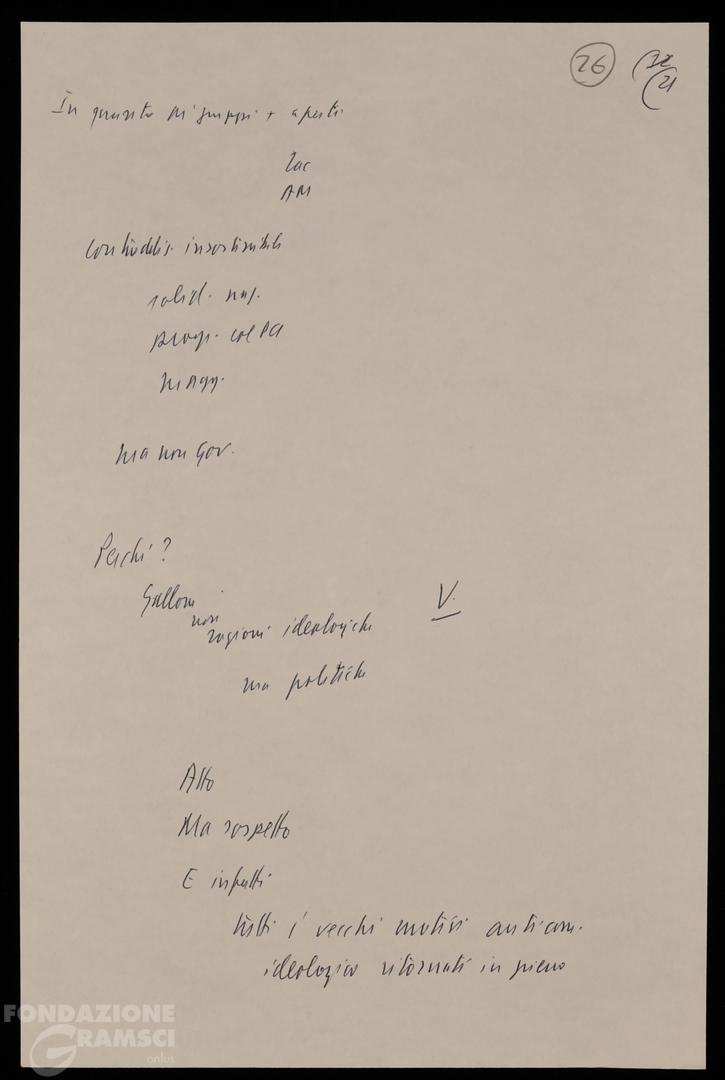 26
In quanto ai gruppi + aperti
Zac
AM
Contraddiz. insostenibili
solid. naz.
progr. col PCI
magg.
ma non Gov.
Perché?
Galloni
V.
non
ragioni ideologiche
ma politiche
Alto
Ma sospetto
E infatti
tutti i vecchi motivi anticom.
ideologico ritornati in pieno
FONDAZIONE
GRAMSCI
onlus